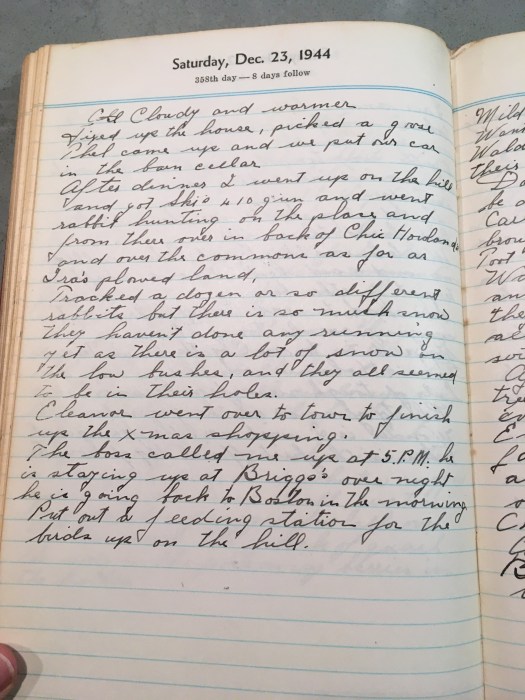 Saturday, Dec. 23, 1944
358th day — 8 days follow
Cloudy and warmer
Fixed up the house, picked a goose
Phil came up and we put our car
in the barn cellar
After dinner I went up on the hill
and got Ski's 410 gun and went
rabbit hunting on the place and
from there over in back of Chic
and over the commons as far as
Ira's plowed land.
Tracked a dozen or so different
rabbits but there is so much snow
they haven't done any running
yet as there is a lot of snow on
the low bushes, and they all seemed
to be in their holes.
Eleanor went over to town to finish
up the x-mas shopping.
The boss called me up at 5 P.M. he
is staying up at Briggs's over night
he is going back to Boston in the morning
Put out a feeding station for the
birds up on the hill.
Mild
their
be a